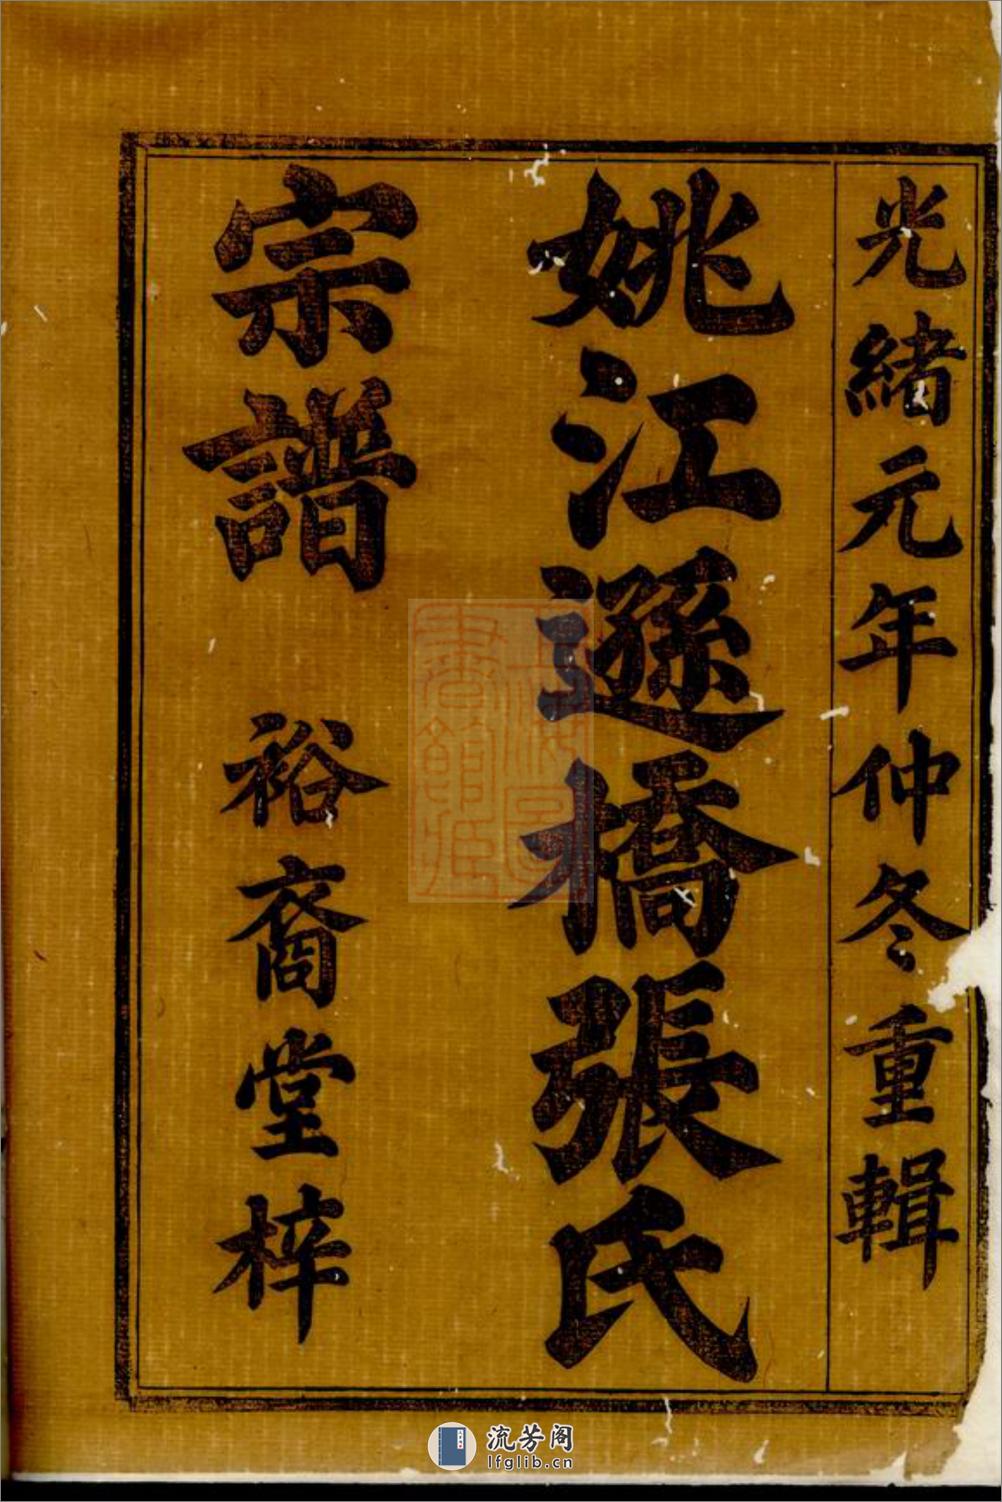 光緒元年仲冬重輯
姚江遜橋張氏
宗譜 裕裔堂梓
流芳阁
lfglib.cn